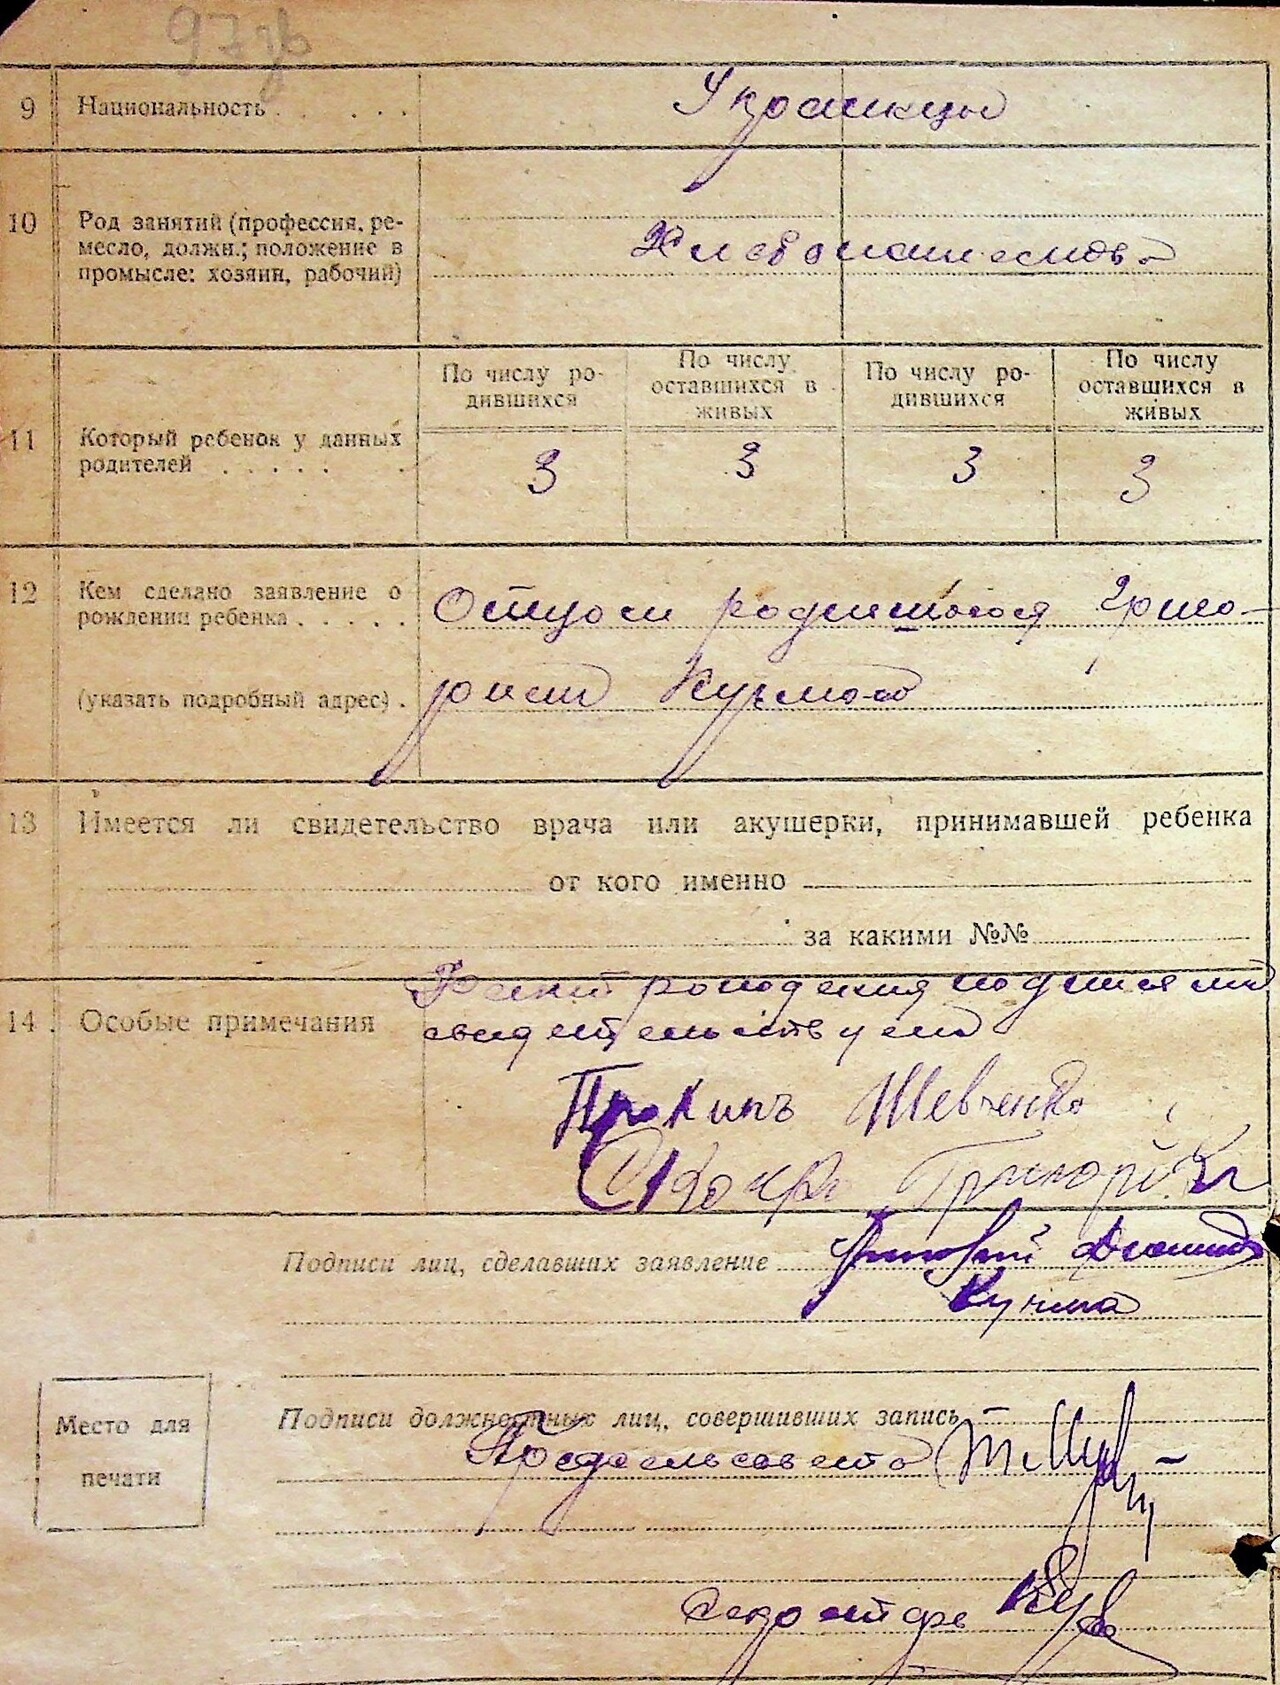 97зв
9 Национальность . . . . . Украинцы
10 Род занятий (профессия, ре-
месло, должн.; положение в
промысле: хозяин, рабочий)
Хлебопашество
11 Который ребенок у данных
родителей . . . . . .
По числу ро-
дившихся
По числу
оставшихся в
живых
По числу ро-
дившихся
По числу
оставшихся в
живых
3 3 3 3
12 Кем сделано заявление о
рождении ребенка . . . . .
(указать подробный адрес) .
Отцом родившогося Григо-
рием Кучмою
13 Имеется ли свидетельство врача или акушерки, принимавшей ребенка
от кого именно
за какими №№
14. Особые примечания
Факт рождения подписями
свидетельствуем
Прокипъ Шевченко
Григорий
Подписи лиц, сделавших заявление Григорий
Кучма
Подписи должностных лиц, совершивших запись
Предсельсовета
Место для
печати
Секретарь